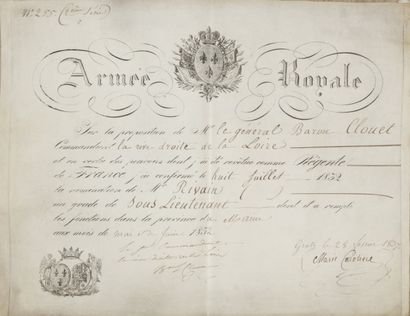 N° 255 (2me Série)
Armée Royale
Sur la proposition de Mr le général Baron Clouet
Commandant la rive droite de la Loire
et en vertu des pouvoirs dont j'ai été revêtue comme Régente
de France, j'ai confirmé le huit Juillet 1832
la nomination de Mr Rivain ( )
au grade de Sous Lieutenant dont il a rempli
les fonctions dans la province du Maine
aux mois de mai et de juin 1832.
Gratz le 28
Marie Caroline